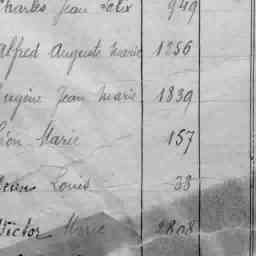 Charles Jean Felix 949
Alfred Auguste Marie 1256
Eugène Jean Marie 1839
Léon Marie 157
Jean Louis 38
Victor Marie 2808